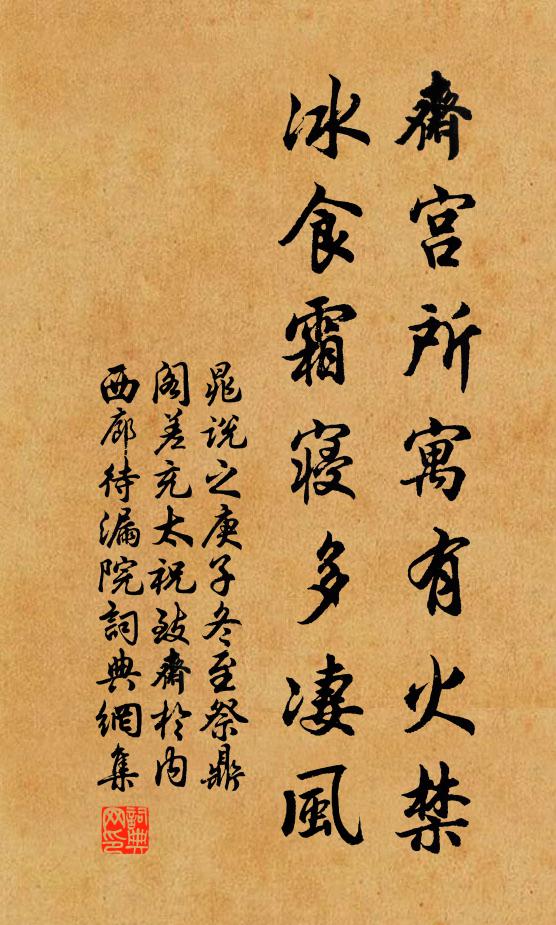 齋宮所寓有火禁
冰食霜寢多凄風
晁説之庚子冬至祭鼎
閣差充太祝致齋於内
西廊待漏院詞典網集
詞典
网印